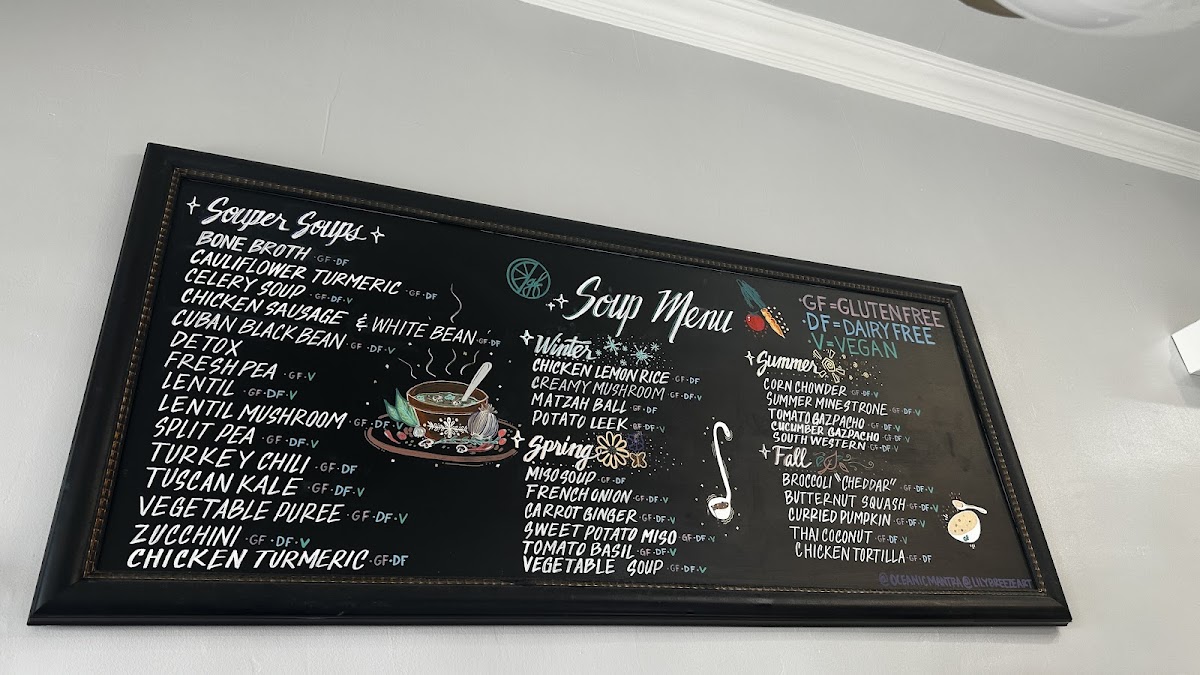 Souper Soups
BONE BROTH ·GF·DF
CAULIFLOWER TURMERIC ·GF·DF
CELERY SOUP ·GF·DF·V
CHICKEN SAUSAGE & WHITE BEAN ·GF·DF
CUBAN BLACK BEAN ·GF·DF·V
DETOX
FRESH PEA ·GF·V
LENTIL ·GF·DF·V
LENTIL MUSHROOM ·GF·DF·V
SPLIT PEA ·GF·DF·V
TURKEY CHILI ·GF·DF
TUSCAN KALE ·GF·DF·V
VEGETABLE PUREE ·GF·DF·V
ZUCCHINI ·GF·DF·V
CHICKEN TURMERIC ·GF·DF
Soup Menu
Winter
CHICKEN LEMON RICE ·GF·DF
CREAMY MUSHROOM ·GF·DF·V
MATZAH BALL ·GF·DF
POTATO LEEK ·GF·DF·V
Spring
MISO SOUP ·GF·DF
FRENCH ONION ·GF·DF·V
CARROT GINGER ·GF·DF·V
SWEET POTATO MISO ·GF·DF·V
TOMATO BASIL ·GF·DF·V
VEGETABLE SOUP ·GF·DF·V
GF=GLUTEN FREE
DF=DAIRY FREE
V=VEGAN
Summer
CORN CHOWDER ·GF·DF·V
SUMMER MINESTRONE ·GF·DF·V
TOMATO GAZPACHO ·GF·DF·V
CUCUMBER GAZPACHO ·GF·DF·V
SOUTH WESTERN ·GF·DF·V
Fall
BROCCOLI "CHEDDAR" ·GF·DF·V
BUTTERNUT SQUASH ·GF·DF·V
CURRIED PUMPKIN ·GF·DF·V
THAI COCONUT ·GF·DF·V
CHICKEN TORTILLA ·GF·DF
@OCEANICMANTRA @LILYBREEZEART